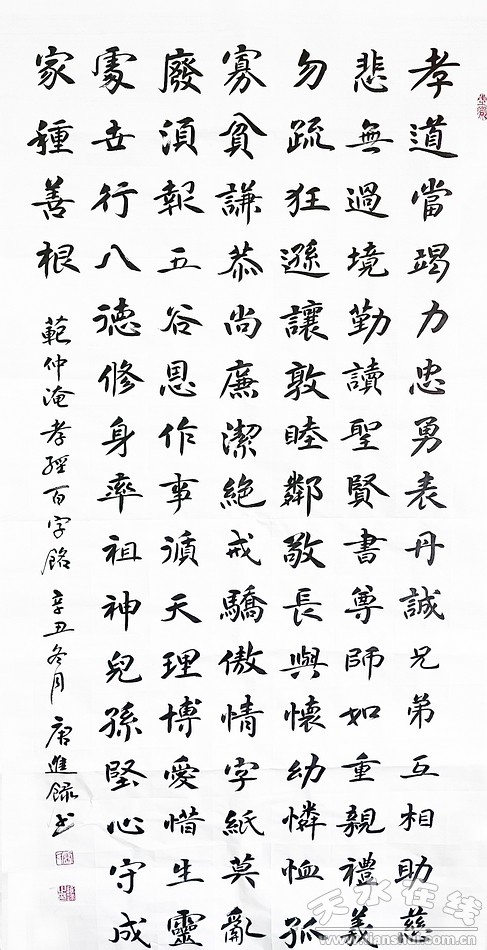 孝道當竭力忠勇表丹誠兄弟互相助慈
悲無過境勤讀聖賢書尊師如重親禮義
勿疏狂遜讓敦睦鄰敬長與懷幼憐恤孤
寡貧謙恭尚廉潔絕戒驕傲情字紙莫亂
廢須報五谷恩作事循天理博愛惜生靈
處世行八德修身率祖神兒孫堅心守成
家種善根 範仲淹孝經百字銘 辛丑冬月 唐進録书
天水在线
www.tianshui.com.cn